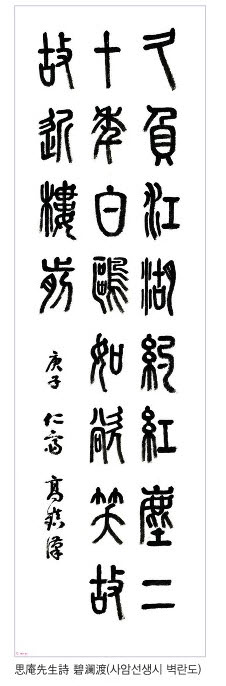 久負江湖約紅塵二
十秊白鷗如欲笑故
故近樓前
庚子 仁齋 高漢
思庵先生詩 碧瀾渡(사암선생시 벽란도)